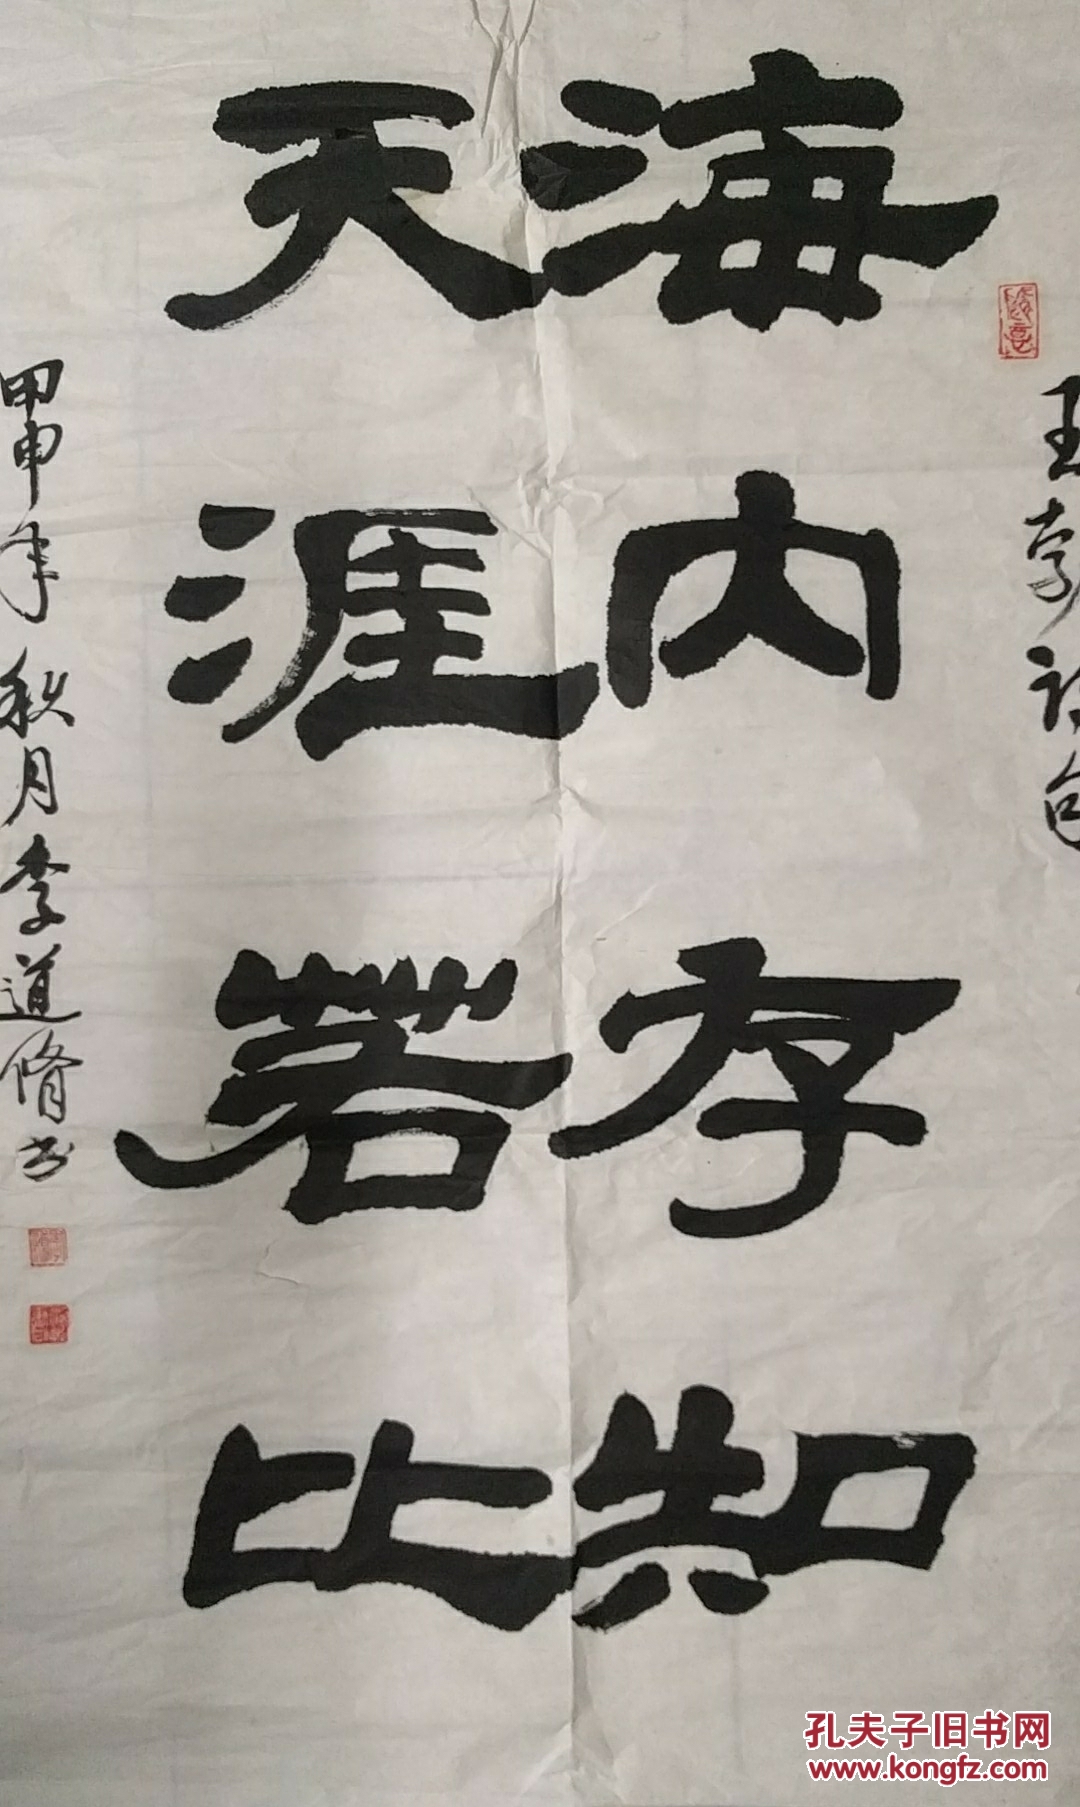 王勃诗句
海内存知
天涯若比
甲申年秋月李道脩书
孔夫子旧书网
www.kongfz.com